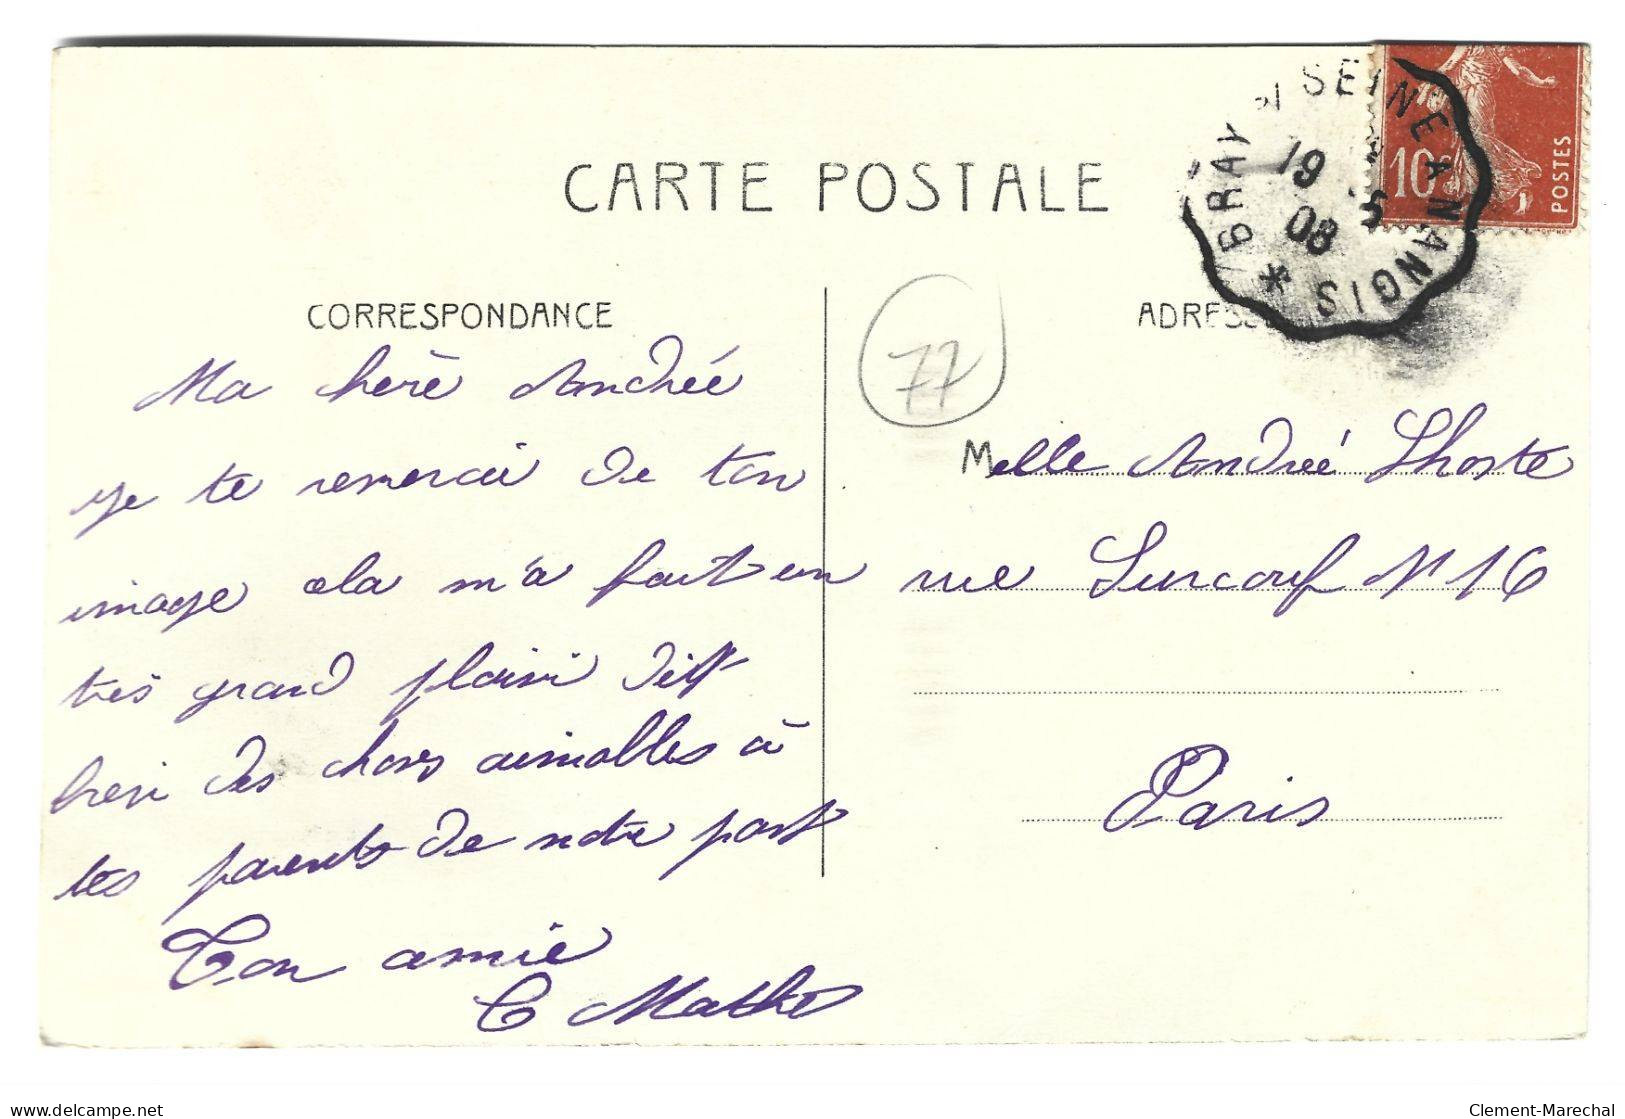 CARTE POSTALE
BRAY S/ SEINE A NANGIS
19 5
08
10c
POSTES
CORRESPONDANCE
ADRESSE
77
Ma chère Andrée
Je te remercie de ton
image cela m'a fait un
très grand plaisir dit
bien des choses aimables à
tes parents de notre part
Ton amie
C Mathé
Melle Andrée Lhoste
rue Surcouf N 16
Paris
delcampe.net
Clement-Marechal